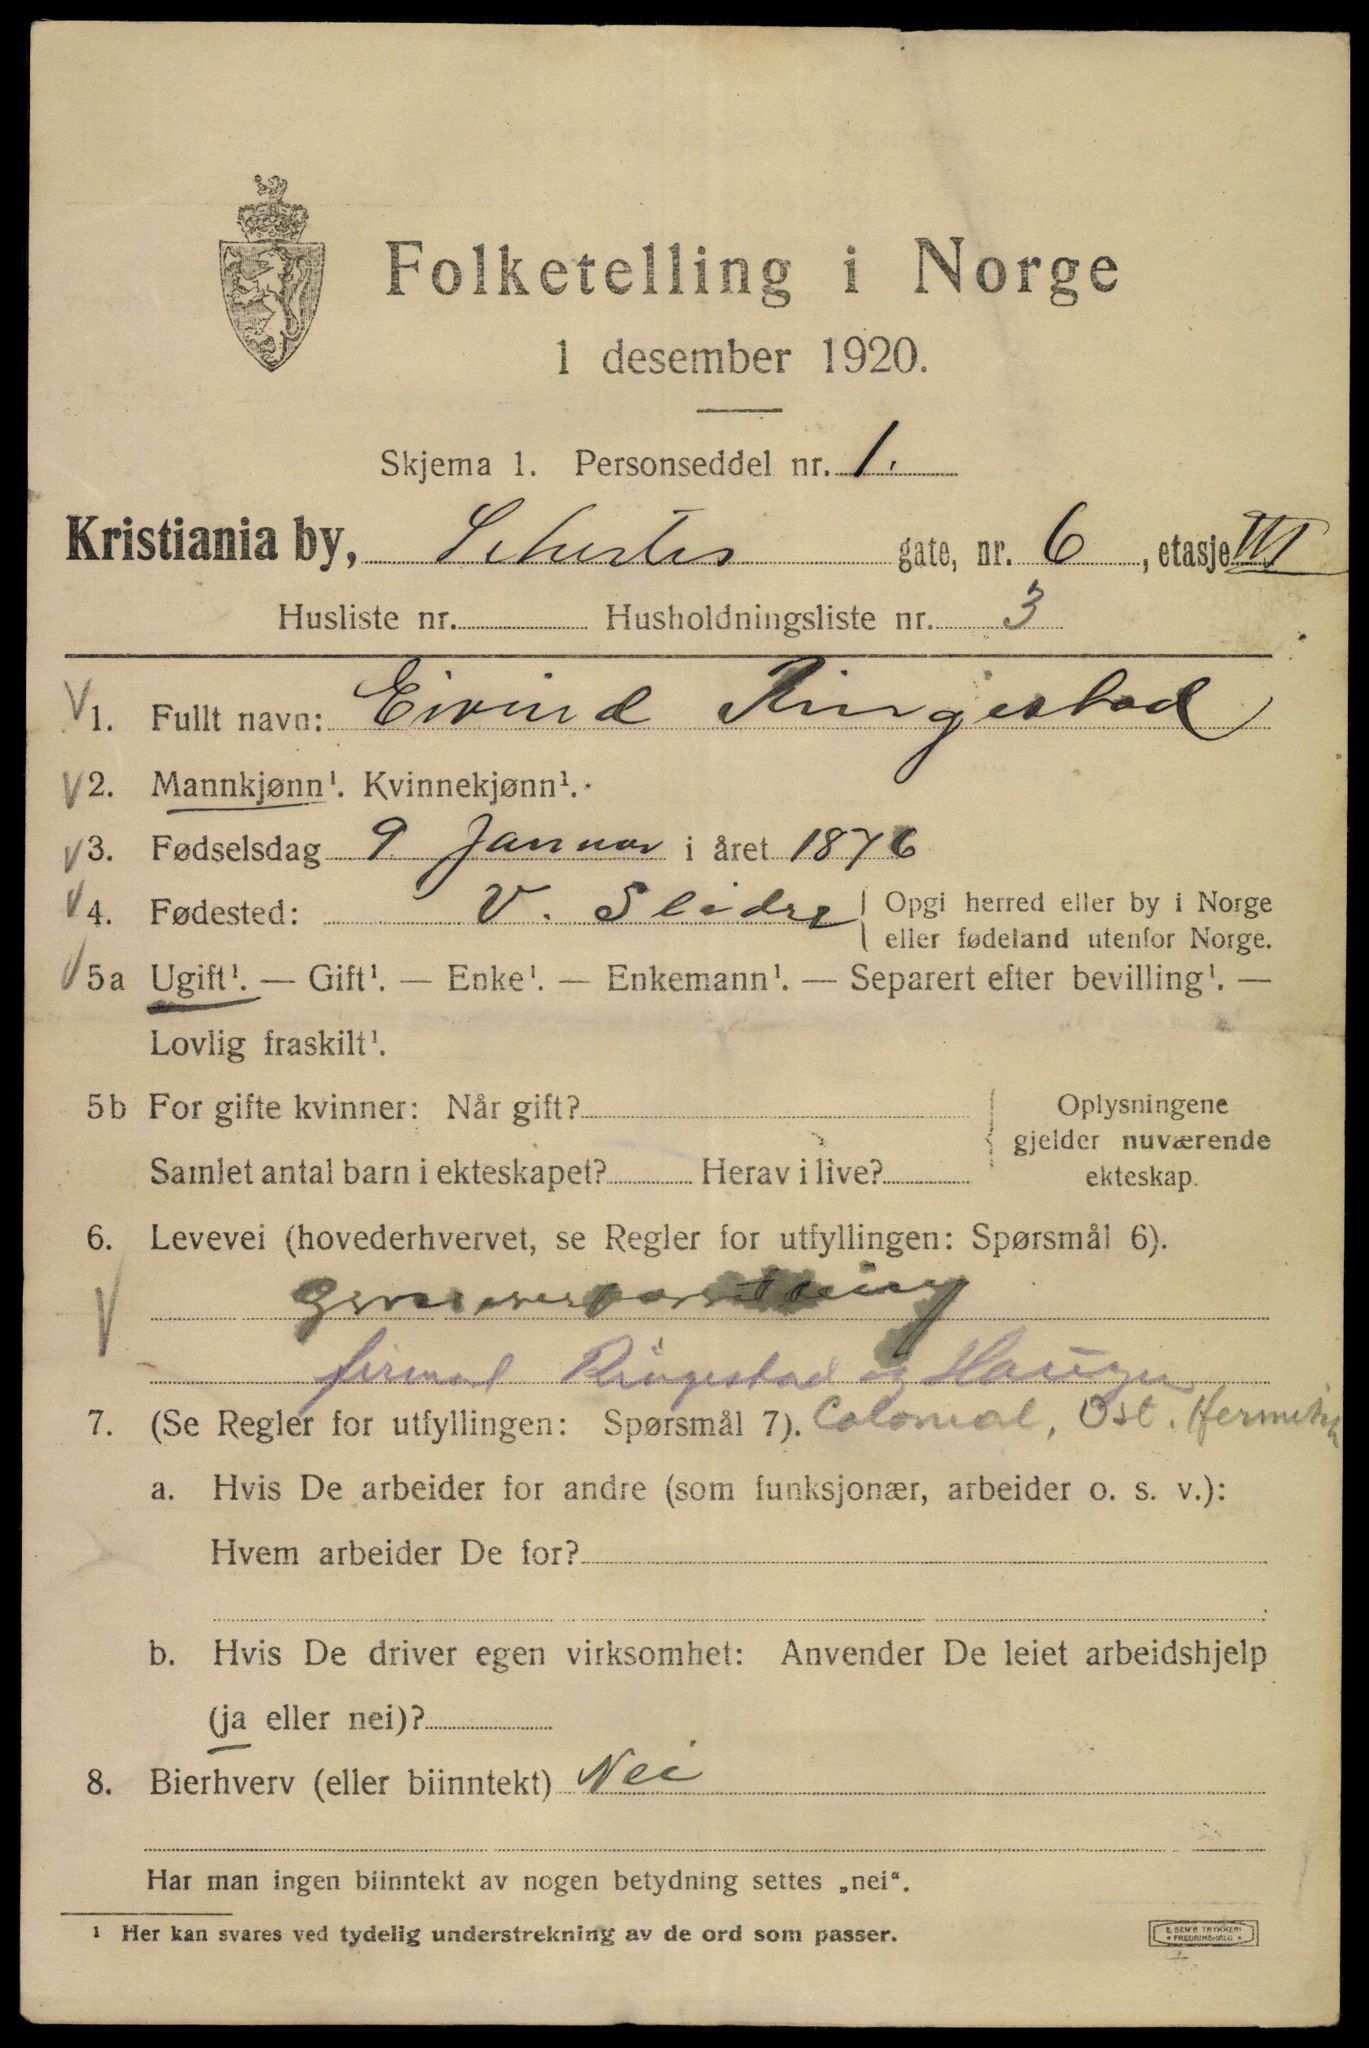 Folketelling i Norge
1 desember 1920.
Skjema 1. Personseddel nr. 1.
Kristiania by, Schultes gate, nr. 6, etasje III
Husliste nr. Husholdningsliste nr. 3
V 1. Fullt navn: Eivind Ringestad
V 2. Mannkjønn¹. Kvinnekjønn¹.
V 3. Fødselsdag 9 Januar i året 1876
V 4. Fødested: V. Slidre { Opgi herred eller by i Norge
eller fødeland utenfor Norge.
V 5a Ugift¹. — Gift¹. — Enke¹. — Enkemann¹. — Separert efter bevilling¹. —
Lovlig fraskilt¹.
5b For gifte kvinner: Når gift? Oplysningene
gjelder nuværende
Samlet antal barn i ekteskapet? Herav i live? ekteskap.
6. Levevei (hovederhvervet, se Regler for utfyllingen: Spørsmål 6).
V
firma Ringestad og Haugen
7. (Se Regler for utfyllingen: Spørsmål 7). Colonial, Ost, Hermetik
a. Hvis De arbeider for andre (som funksjonær, arbeider o. s. v.):
Hvem arbeider De for?
b. Hvis De driver egen virksomhet: Anvender De leiet arbeidshjelp
(ja eller nei)?
8. Bierhverv (eller biinntekt) Nei
Har man ingen biinntekt av nogen betydning settes „nei“.
¹ Her kan svares ved tydelig understrekning av de ord som passer.
E. SEM'S TRYKKERI
FREDRIKSHALD